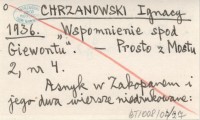 CHRZANOWSKI Ignacy
1936. „Wspomnienie spod
Giewontu". — Prosto z Mostu
2, nr 4.
Asnyk w Zakopanem i
jego dwa wiersze niedrukowane.